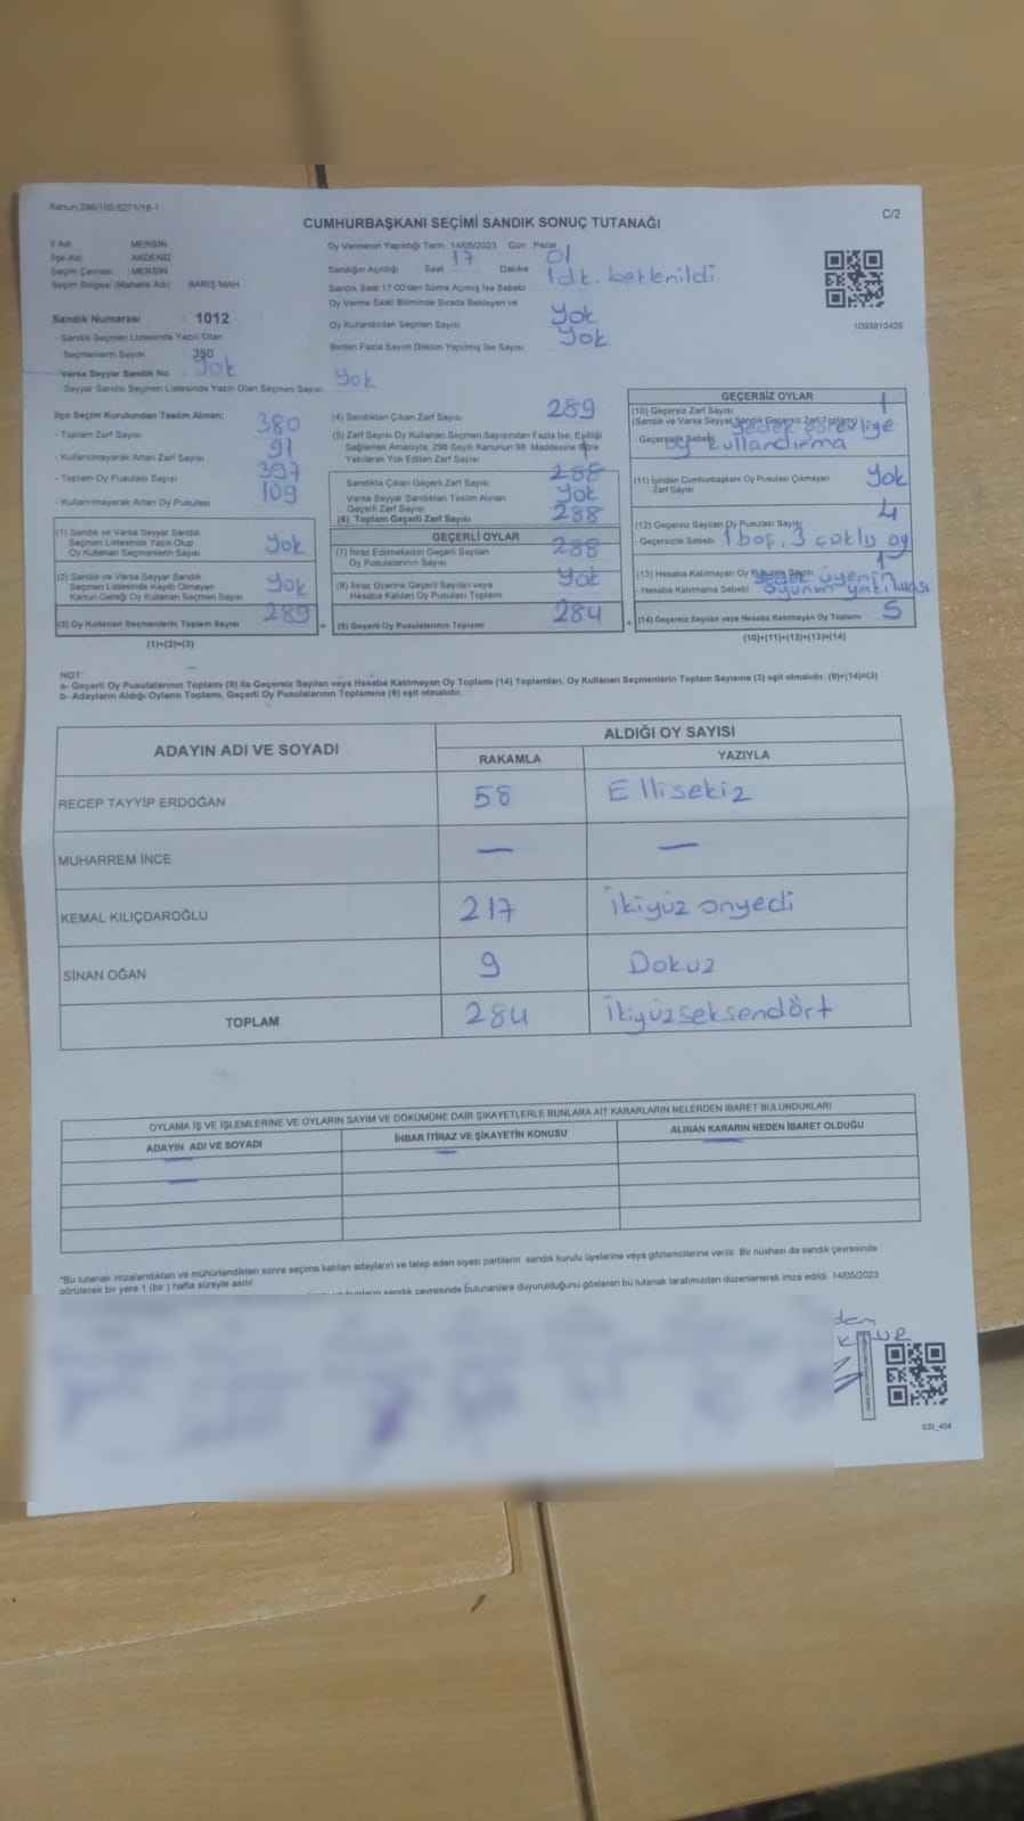 Kanun 298/105-6271/18-1
C/2
CUMHURBAŞKANI SEÇİMİ SANDIK SONUÇ TUTANAĞI
İl Adı MERSİN
İlçe Adı AKDENİZ
Seçim Çevresi MERSİN
Seçim Bölgesi (Mahalle Adı) BARIŞ MAH
Sandık Numarası 1012
Sandık Seçmen Listesinde Yazılı Olan
Seçmenlerin Sayısı 350
Varsa Seyyar Sandık No Yok
Seyyar Sandık Seçmen Listesinde Yazılı Olan Seçmen Sayısı Yok
Oy Vermenin Yapıldığı Tarih 14/05/2023 Gün Pazar
Sandığın Açıldığı Saat 17 Dakika 01
Sandık Saat 17:00'den Sonra Açılmış İse Sebebi 1dk. beklenildi
Oy Verme Saati Bitiminde Sırada Bekleyen ve
Oy Kullandırılan Seçmen Sayısı Yok
Birden Fazla Sayım Döküm Yapılmış İse Sayısı Yok
1093813426
İlçe Seçim Kurulundan Teslim Alınan;
- Toplam Zarf Sayısı 380
- Kullanılmayarak Artan Zarf Sayısı 91
- Toplam Oy Pusulası Sayısı 397
- Kullanılmayarak Artan Oy Pusulası 109
(1) Sandık ve Varsa Seyyar Sandık
Seçmen Listesinde Yazılı Olup
Oy Kullanan Seçmenlerin Sayısı Yok
(2) Sandık ve Varsa Seyyar Sandık
Seçmen Listesinde Kayıtlı Olmayan
Kanun Gereği Oy Kullanan Seçmen Sayısı Yok
(3) Oy Kullanan Seçmenlerin Toplam Sayısı 289
(1)+(2)=(3)
(4) Sandıktan Çıkan Zarf Sayısı 289
(5) Zarf Sayısı Oy Kullanan Seçmen Sayısından Fazla İse, Eşitliği
Sağlamak Amacıyla, 298 Sayılı Kanunun 98. Maddesine Göre
Yakılarak Yok Edilen Zarf Sayısı
Sandıkta Çıkan Geçerli Zarf Sayısı 288
Varsa Seyyar Sandıktan Teslim Alınan
Geçerli Zarf Sayısı Yok
(6) Toplam Geçerli Zarf Sayısı 288
GEÇERLİ OYLAR
(7) İtiraz Edilmeksizin Geçerli Sayılan
Oy Pusulalarının Sayısı 288
(8) İtiraz Üzerine Geçerli Sayılan veya
Hesaba Katılan Oy Pusulası Toplamı Yok
(9) Geçerli Oy Pusulalarının Toplamı 284
GEÇERSİZ OYLAR
(10) Geçersiz Zarf Sayısı 1
(Sandık ve Varsa Seyyar Sandık Geçersiz Zarf Toplamı)
Geçersizlik Sebebi
oy kullandırma
(11) İçinden Cumhurbaşkanı Oy Pusulası Çıkmayan
Zarf Sayısı Yok
(12) Geçersiz Sayılan Oy Pusulası Sayısı 4
Geçersizlik Sebebi 1 boş, 3 çoklu oy
(13) Hesaba Katılmayan Oy Pusulası Sayısı 1
Hesaba Katılmama Sebebi yedek üyenin oyunun yakılması
(14) Geçersiz Sayılan veya Hesaba Katılmayan Oy Toplamı 5
(10)+(11)+(12)+(13)=(14)
NOT:
a- Geçerli Oy Pusulalarının Toplamı (9) ile Geçersiz Sayılan veya Hesaba Katılmayan Oy Toplamı (14) Toplamları, Oy Kullanan Seçmenlerin Toplam Sayısına (3) eşit olmalıdır. (9)+(14)=(3)
b- Adayların Aldığı Oyların Toplamı, Geçerli Oy Pusulalarının Toplamına (9) eşit olmalıdır.
ADAYIN ADI VE SOYADI
ALDIĞI OY SAYISI
RAKAMLA YAZIYLA
RECEP TAYYİP ERDOĞAN 58 Ellisekiz
MUHARREM İNCE — —
KEMAL KILIÇDAROĞLU 217 İkiyüz onyedi
SİNAN OĞAN 9 Dokuz
TOPLAM 284 İkiyüzseksendört
OYLAMA İŞ VE İŞLEMLERİNE VE OYLARIN SAYIM VE DÖKÜMÜNE DAİR ŞİKAYETLERLE BUNLARA AİT KARARLARIN NELERDEN İBARET BULUNDUKLARI
ADAYIN ADI VE SOYADI İHBAR İTİRAZ VE ŞİKAYETİN KONUSU ALINAN KARARIN NEDEN İBARET OLDUĞU
*Bu tutanak imzalandıktan ve mühürlendikten sonra seçime katılan adayların ve talep eden siyasi partilerin sandık kurulu üyelerine veya gözlemcilerine verilir. Bir nüshası da sandık çevresinde
görülecek bir yere 1 (bir) hafta süreyle asılır.
sandık çevresinde bulunanlara duyurulduğunu gösteren bu tutanak tarafımızdan düzenlenerek imza edildi. 14/05/2023